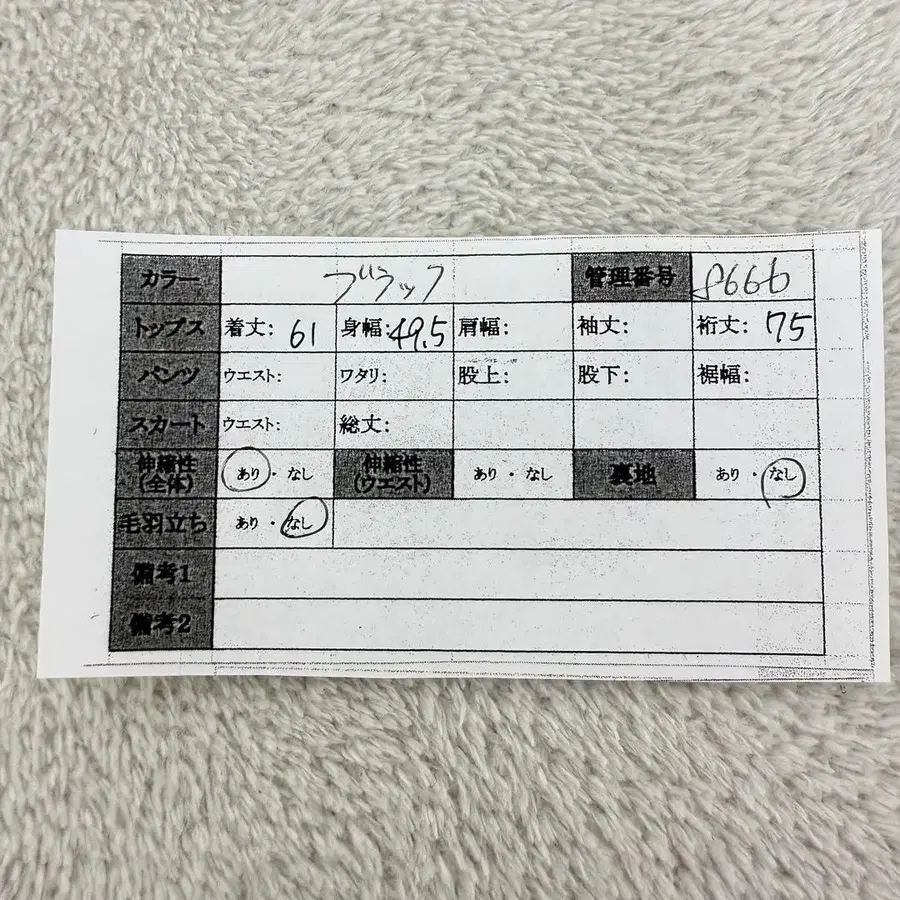 カラー ブラック 管理番号 8666
トップス 着丈: 61 身幅: 49.5 肩幅: 袖丈: 裄丈: 75
パンツ ウエスト: ワタリ: 股上: 股下: 裾幅:
スカート ウエスト: 総丈:
伸縮性(全体) あり・なし 伸縮性(ウエスト) あり・なし 裏地 あり・なし
毛羽立ち あり・なし
備考1
備考2